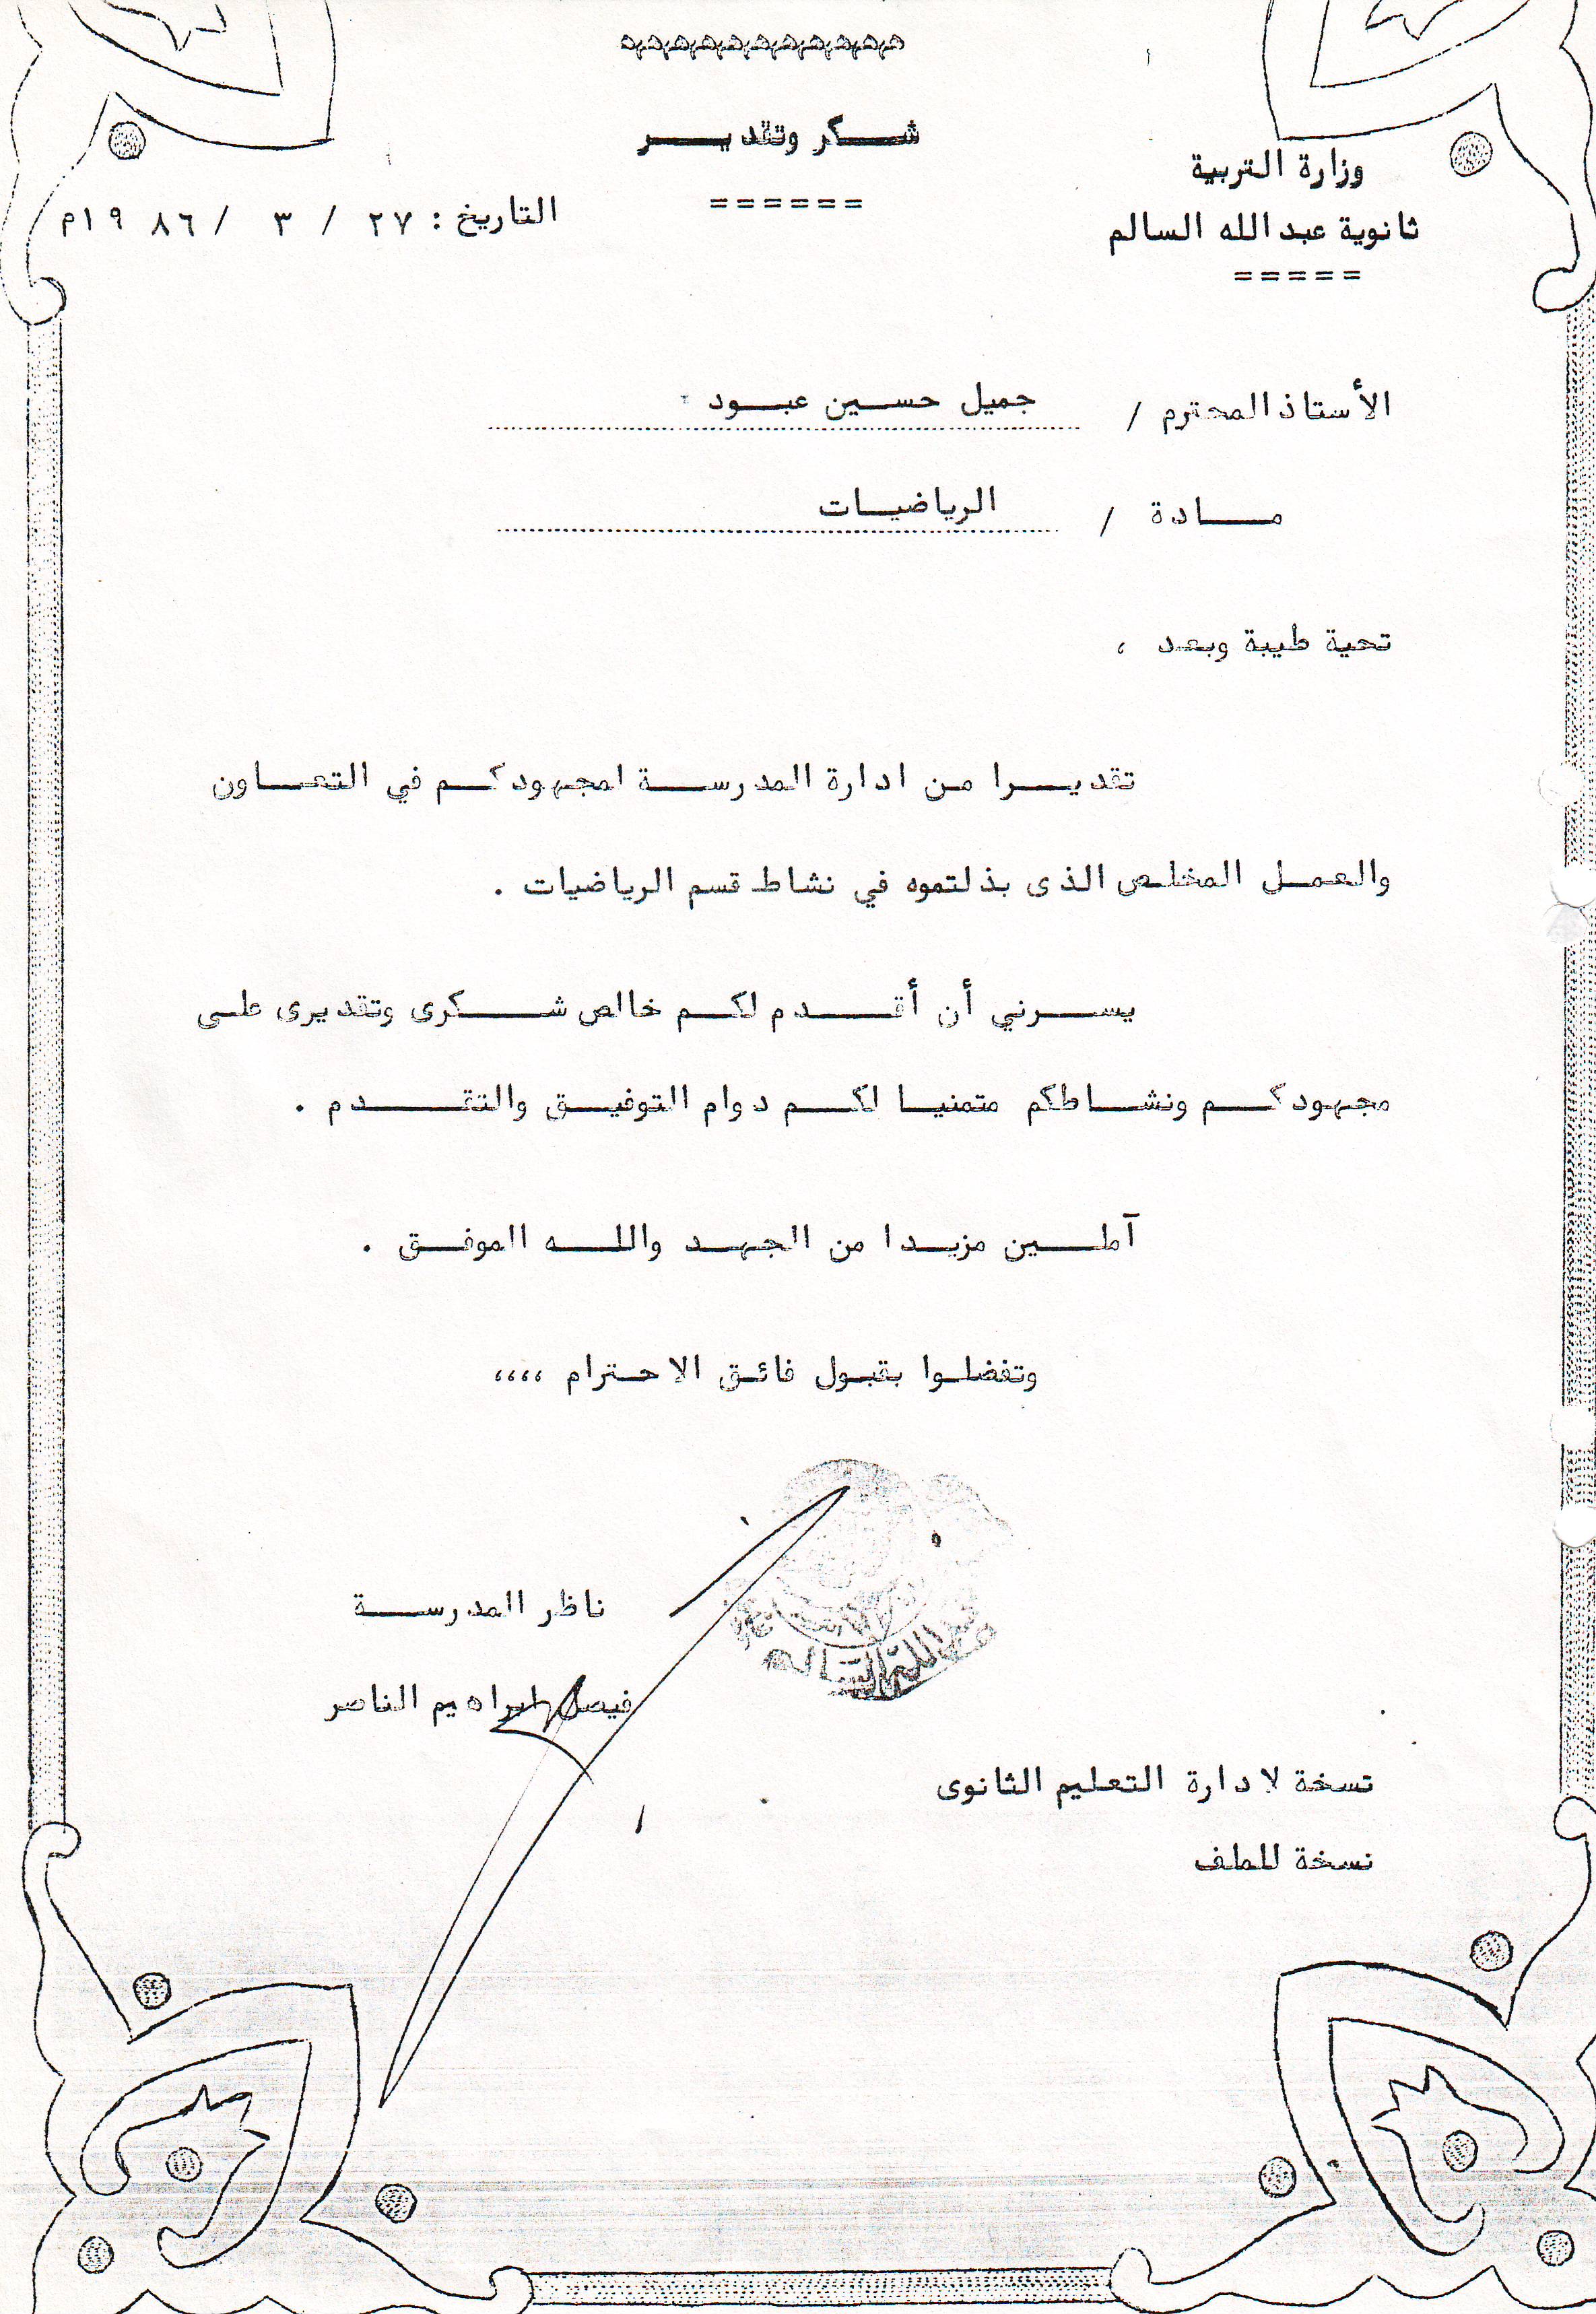 شكر وتقدير
======
وزارة التربية
ثانوية عبدالله السالم
=====
التاريخ : ٢٧ / ٣ / ١٩٨٦م
الأستاذ المحترم / جميل حسين عبود
مادة / الرياضيات
تحية طيبة وبعد ،
تقديرا من ادارة المدرسة لمجهودكم في التعاون
والعمل المخلص الذى بذلتموه في نشاط قسم الرياضيات .
يسرني أن أقدم لكم خالص شكرى وتقديرى على
مجهودكم ونشاطكم متمنيا لكم دوام التوفيق والتقدم .
آملين مزيدا من الجهد والله الموفق .
وتفضلوا بقبول فائق الاحترام ،،،،
ناظر المدرسة
فيصل ابراهيم الناصر
عبدالله السالم
نسخة لادارة التعليم الثانوى
نسخة للملف